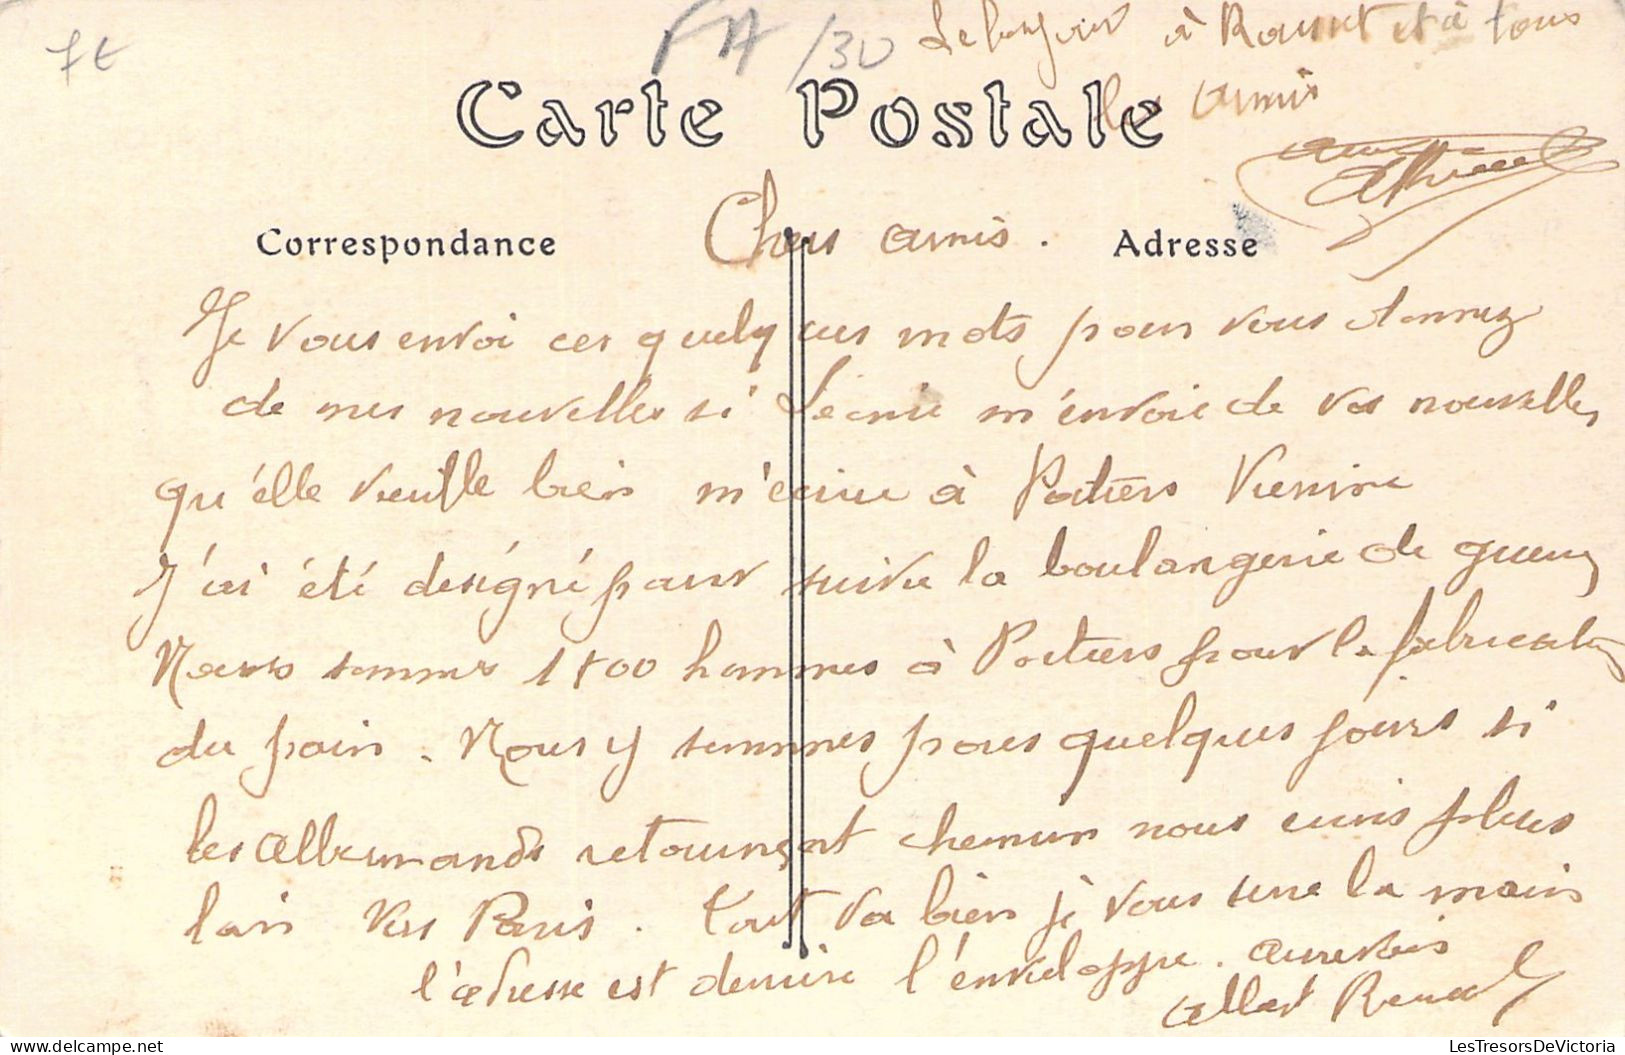 7 €
FA/30
Le bonjour à Rousset et à tous
les amis
Carte Postale
Correspondance
Adresse
Chers amis.
Je vous envoi ces quelques mots pour vous donnez
de mes nouvelles si Léonie m'envoie de vos nouvelles
qu'elle veuille bien m'écrire à Poitiers Vienne
J'ai été désigné pour suivre la boulangerie de guerre
Nous sommes 1800 hommes à Poitiers pour la fabrication
du pain. Nous y sommes pour quelques jours si
les allemands retournent chemin nous irons plus
loin vers Paris. Tout va bien je vous serre la main
l'adresse est derrière l'enveloppe. aurevoir
Albert
LesTresorsDeVictoria
www.delcampe.net